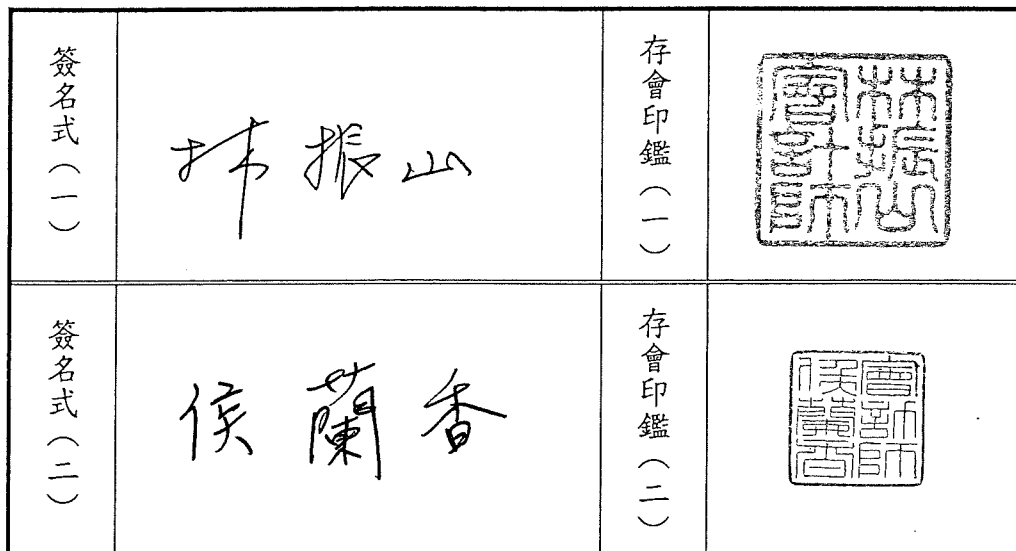 簽名式（一）
林振山
存會印鑑（一）
林振山
會計師
簽名式（二）
侯蘭香
存會印鑑（二）
會計師
侯蘭香